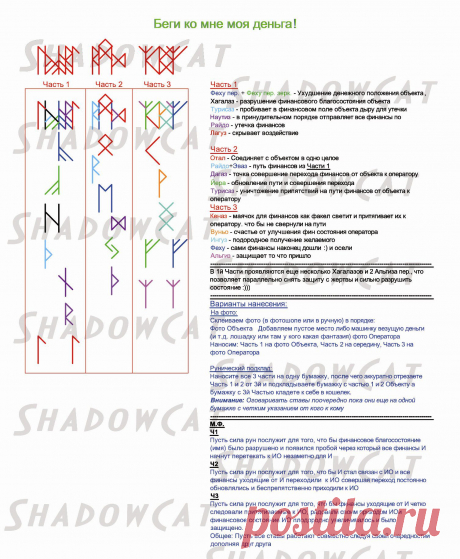 Беги ко мне моя деньга!
SHADOWCAT
Часть 1 Часть 2 Часть 3
Часть 1
Феху пер. + Феху пер. зерк. - Ухудшение денежного положения объекта ,
Хагалаз - разрушение финансового благосостояния объекта
Турисаз - пробивает в финансовом поле объекта дыру для утечки
Наутиз - в принудительном порядке отправляет все финансы по
Райдо - утечка финансов
Лагуз - скрывает воздействие
Часть 2
Отал - Соединяет с объектом в одно целое
Райдо+Эваз - путь финансов из Части 1
Дагаз - точка совершение перехода финансов от объекта к оператору
Йера - обновление пути и совершения перехода
Турисаз - уничтожение припятствий на пути финансов от объекта к
оператору
Часть 3
Кеназ - маячок для финансов как факел светит и притягивает их к
оператору. что бы не свернули на пути
Вуньо - счастье от улучшения фин состояния оператора
Ингуз - плодородное получение желаемого
Феху - сами финансы наконец дошли :) и осели
Альгиз - защищает то что пришло
В 1й Части проявляются еще несколько Хагалазов и 2 Альгиза пер., что
позволяет параллельно снять защиту с жертвы и сильно разрушить
состояние :)))
Варианты нанесения:
На фото:
Склеиваем фото (в фотошопе или в ручную) в порядке:
Фото Объекта Добавляем пустое место либо машинку везущую деньги
(и т.д, лошадку или там у кого какая фантазия) фото Оператора
Наносим: Часть 1 на фото Объекта, Часть 2 на середину, Часть 3 на
фото Оператора
Рунический подклад:
Наносите все 3 части на одну бумажку, после чего аккуратно отрезаете
Часть 1 и 2 от 3й и подкладываете бумажку с частью 1 и 2 Объекту а
бумажку с 3й Частью кладете к себе в кошелек.
Внимание: Оговаривать ставы поочередно пока они еще на одной
бумажке с четким указанием от кого к кому
М.Ф.
Ч1
Пусть сила рун послужит для того, что бы финансовое благосостояние
(имя) было разрушено и появился пробой через который все финансы И
начнут перетекать к ИО незаметно для И
Ч2
Пусть сила рун послужит для того, что бы И стал связан с ИО и все
финансы уходящие от И переходили к ИО совершая переход постоянно
обновлялись и беспрепятственно приходили к ИО
Ч3
Пусть сила рун послужит для того, что бы финансы уходящие от И четко
финансовое состояние ИО плодородно увеличивалось и было
защищено.
Общее: Пусть все ставы работают совместно следуя своей очередностью
дополняя друг друга
postila.ru